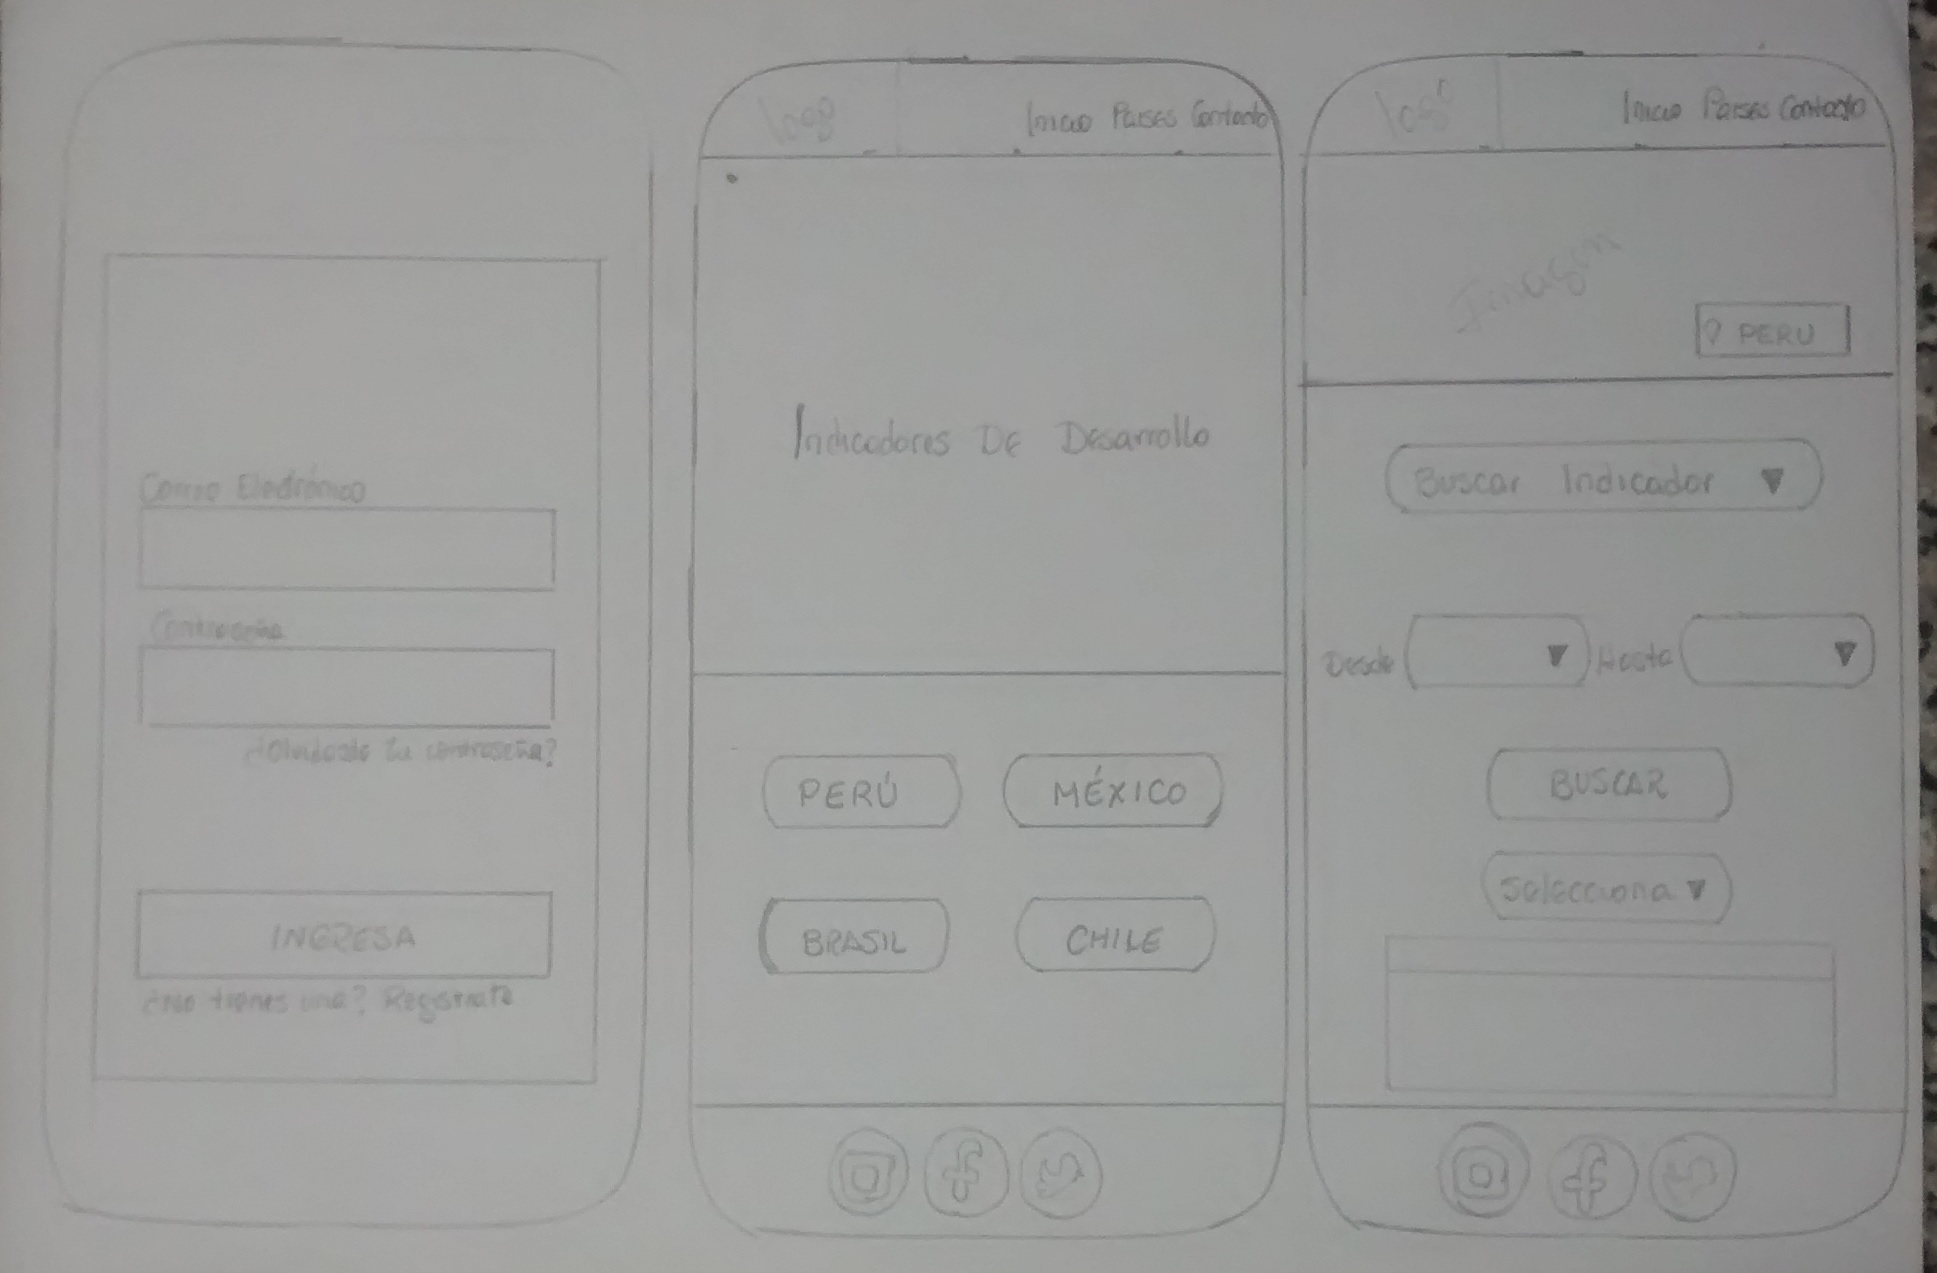 Correo Electrónico
Contraseña
¿Olvidaste tu contraseña?
INGRESA
¿No tienes una? Registrate
logo
Inicio Paises Contacto
Indicadores De Desarrollo
PERÚ MÉXICO
BRASIL CHILE
logo
Inicio Paises Contacto
Imagen
PERU
Buscar Indicador
Desde Hasta
BUSCAR
Selecciona